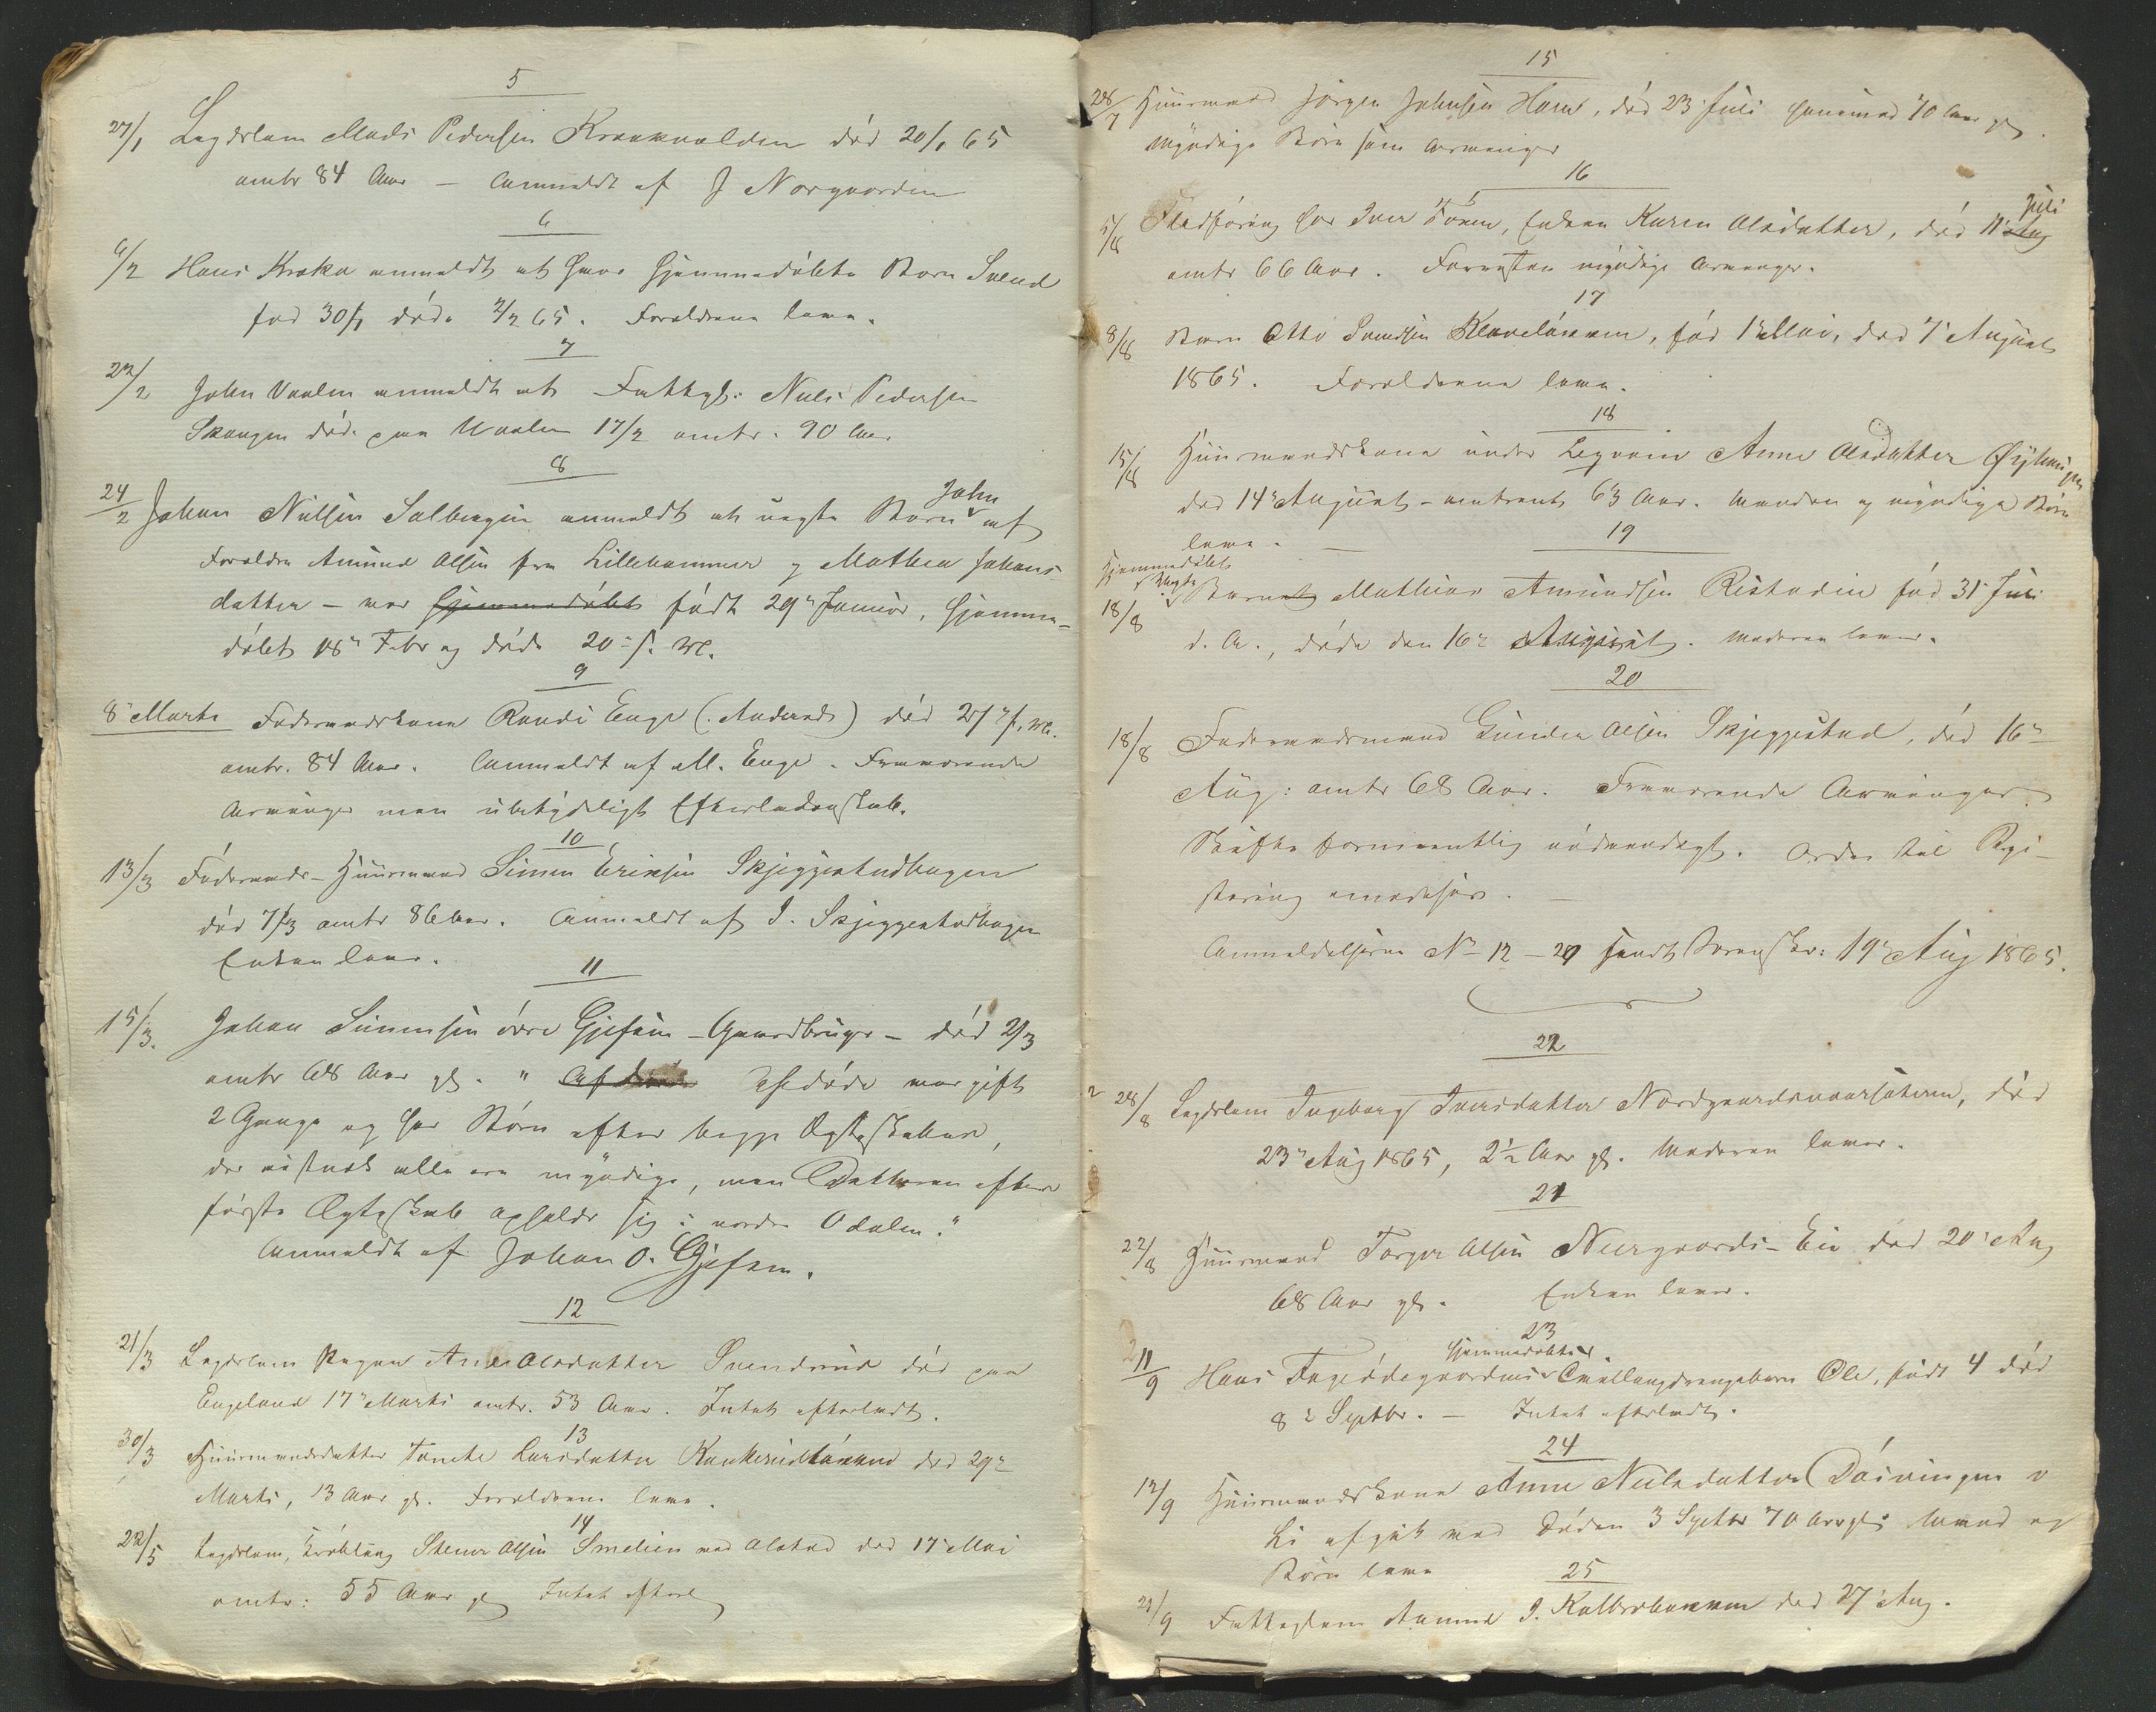 5
27/1 Lægdslem Mads Pedersen Kraakvolden død 20/1 65
omtr 84 Aar – Anmeldt af J Norgaarden
6
6/2 Hans Kroka anmeldt at hans hjemmedøbte Barn Svend
fød 30/1 døde 2/2 65. Forældrene leve.
7
22/2 John Vaalen anmeldt at Fattigl. Niels Pedersen
Skougen død paa Vaalen 17/2 omtr. 90 Aar
8
24/2 Johan Nielsen Solbergeie anmeldt at uægte Barn John af
Forældre Amund Olsen fra Lillehammer og Mathea Johans-
datter – var hjemmedøbt født 29de Januar, hjemme-
døbt 18de Febr og døde 20de s. M.
9
8de Marts Føderaadskone Randi Enge (Andersd) død 27de f. M.
omtr. 84 Aar. Anmeldt af M. Enge. Fraværende
Arvinger men ubetydeligt Efterladenskab.
10
13/3 Føderaads-Huusmand Simen Eriksen Skjeggestadhagen
død 7/3 omtr 86 Aar. Anmeldt af I. Skjeggestadhagen
Enken lever.
11
15/3. Johan Simensen øvre Gjefsen – Gaardbruger – død 2/3
omtr 68 Aar gl. " Afdøde var gift
2 Gange og har Børn efter begge Ægteskaber,
der nistnok alle ere myndige, men Datteren efter
første Ægteskab opholder sig i nordre Odalen."
Anmeldt af Johan O. Gjefsen.
12
21/3 Lægdslem Pigen Ane Olsdatter Svendrud død paa
Engeland 17de Marts omtr. 53 Aar. Intet efterladt.
13
30/3 Huusmandsdatter Larsdatter død 29de
Marts, 13 Aar gl. Forældrene leve.
14
22/5 Lægdslem, Stener Olsen Smelien ved Alstad død 17de Mai
omtr: 55 Aar gl Intet efterl
15
28/7 Huusmand Jørgen Johnsen Horn, død 23 Juli henimod 70 Aar gl.
myndige Børn som Arvinger
16
5/8 Fladføring hos Iver Toven, Enken Karen Olsdatter, død 11 Aug Juli
omtr 66 Aar. Forresten myndige Arvinger.
17
8/8 Barn Otto Svendsen , fød 1de Mai, død 7de August
1865. Forældrene leve.
18
15/8 Huusmandskone under Anne Olsdatter
død 14de August – omtrent 63 Aar. Manden og myndige Børn
leve. –
19
hjemmedøbt
uægte
18/8 Barnet Mathias Amundsen Ristadeie fød 31 Juli
d. A., døde den 16de August. Moderen lever.
20
18/8 Føderaadsmand Gunder Olsen Skjeggestad, død 16de
Aug: omtr 68 Aar. Fraværende Arvinger
Skifte formeentlig nødvendigt. Ordre til Regi-
strering .
Anmeldelserne No 12 – 20 sendt Sorenskr: 19de Aug 1865.
22
2 28/8 Lægdslem Ingeborg Iversdatter død
23de Aug 1865, 2½ Aar gl. Moderen lever.
21
22/8 Huusmand Torger Olsen Neergaards-Eie død 20de Aug
68 Aar gl. Enken lever.
23
11/9 Hans hjemmedøbte Tvillingdrengebarn Ole, født 4 død
8de Septbr. – Intet efterladt.
24
12/9 Huusmandskone Anne Nielsdatter
Li afgik ved Døden 3 Septbr 70 Aar gl. Mand og
Børn leve
25
21/9 Fattiglem Amund J. død 27de Aug.